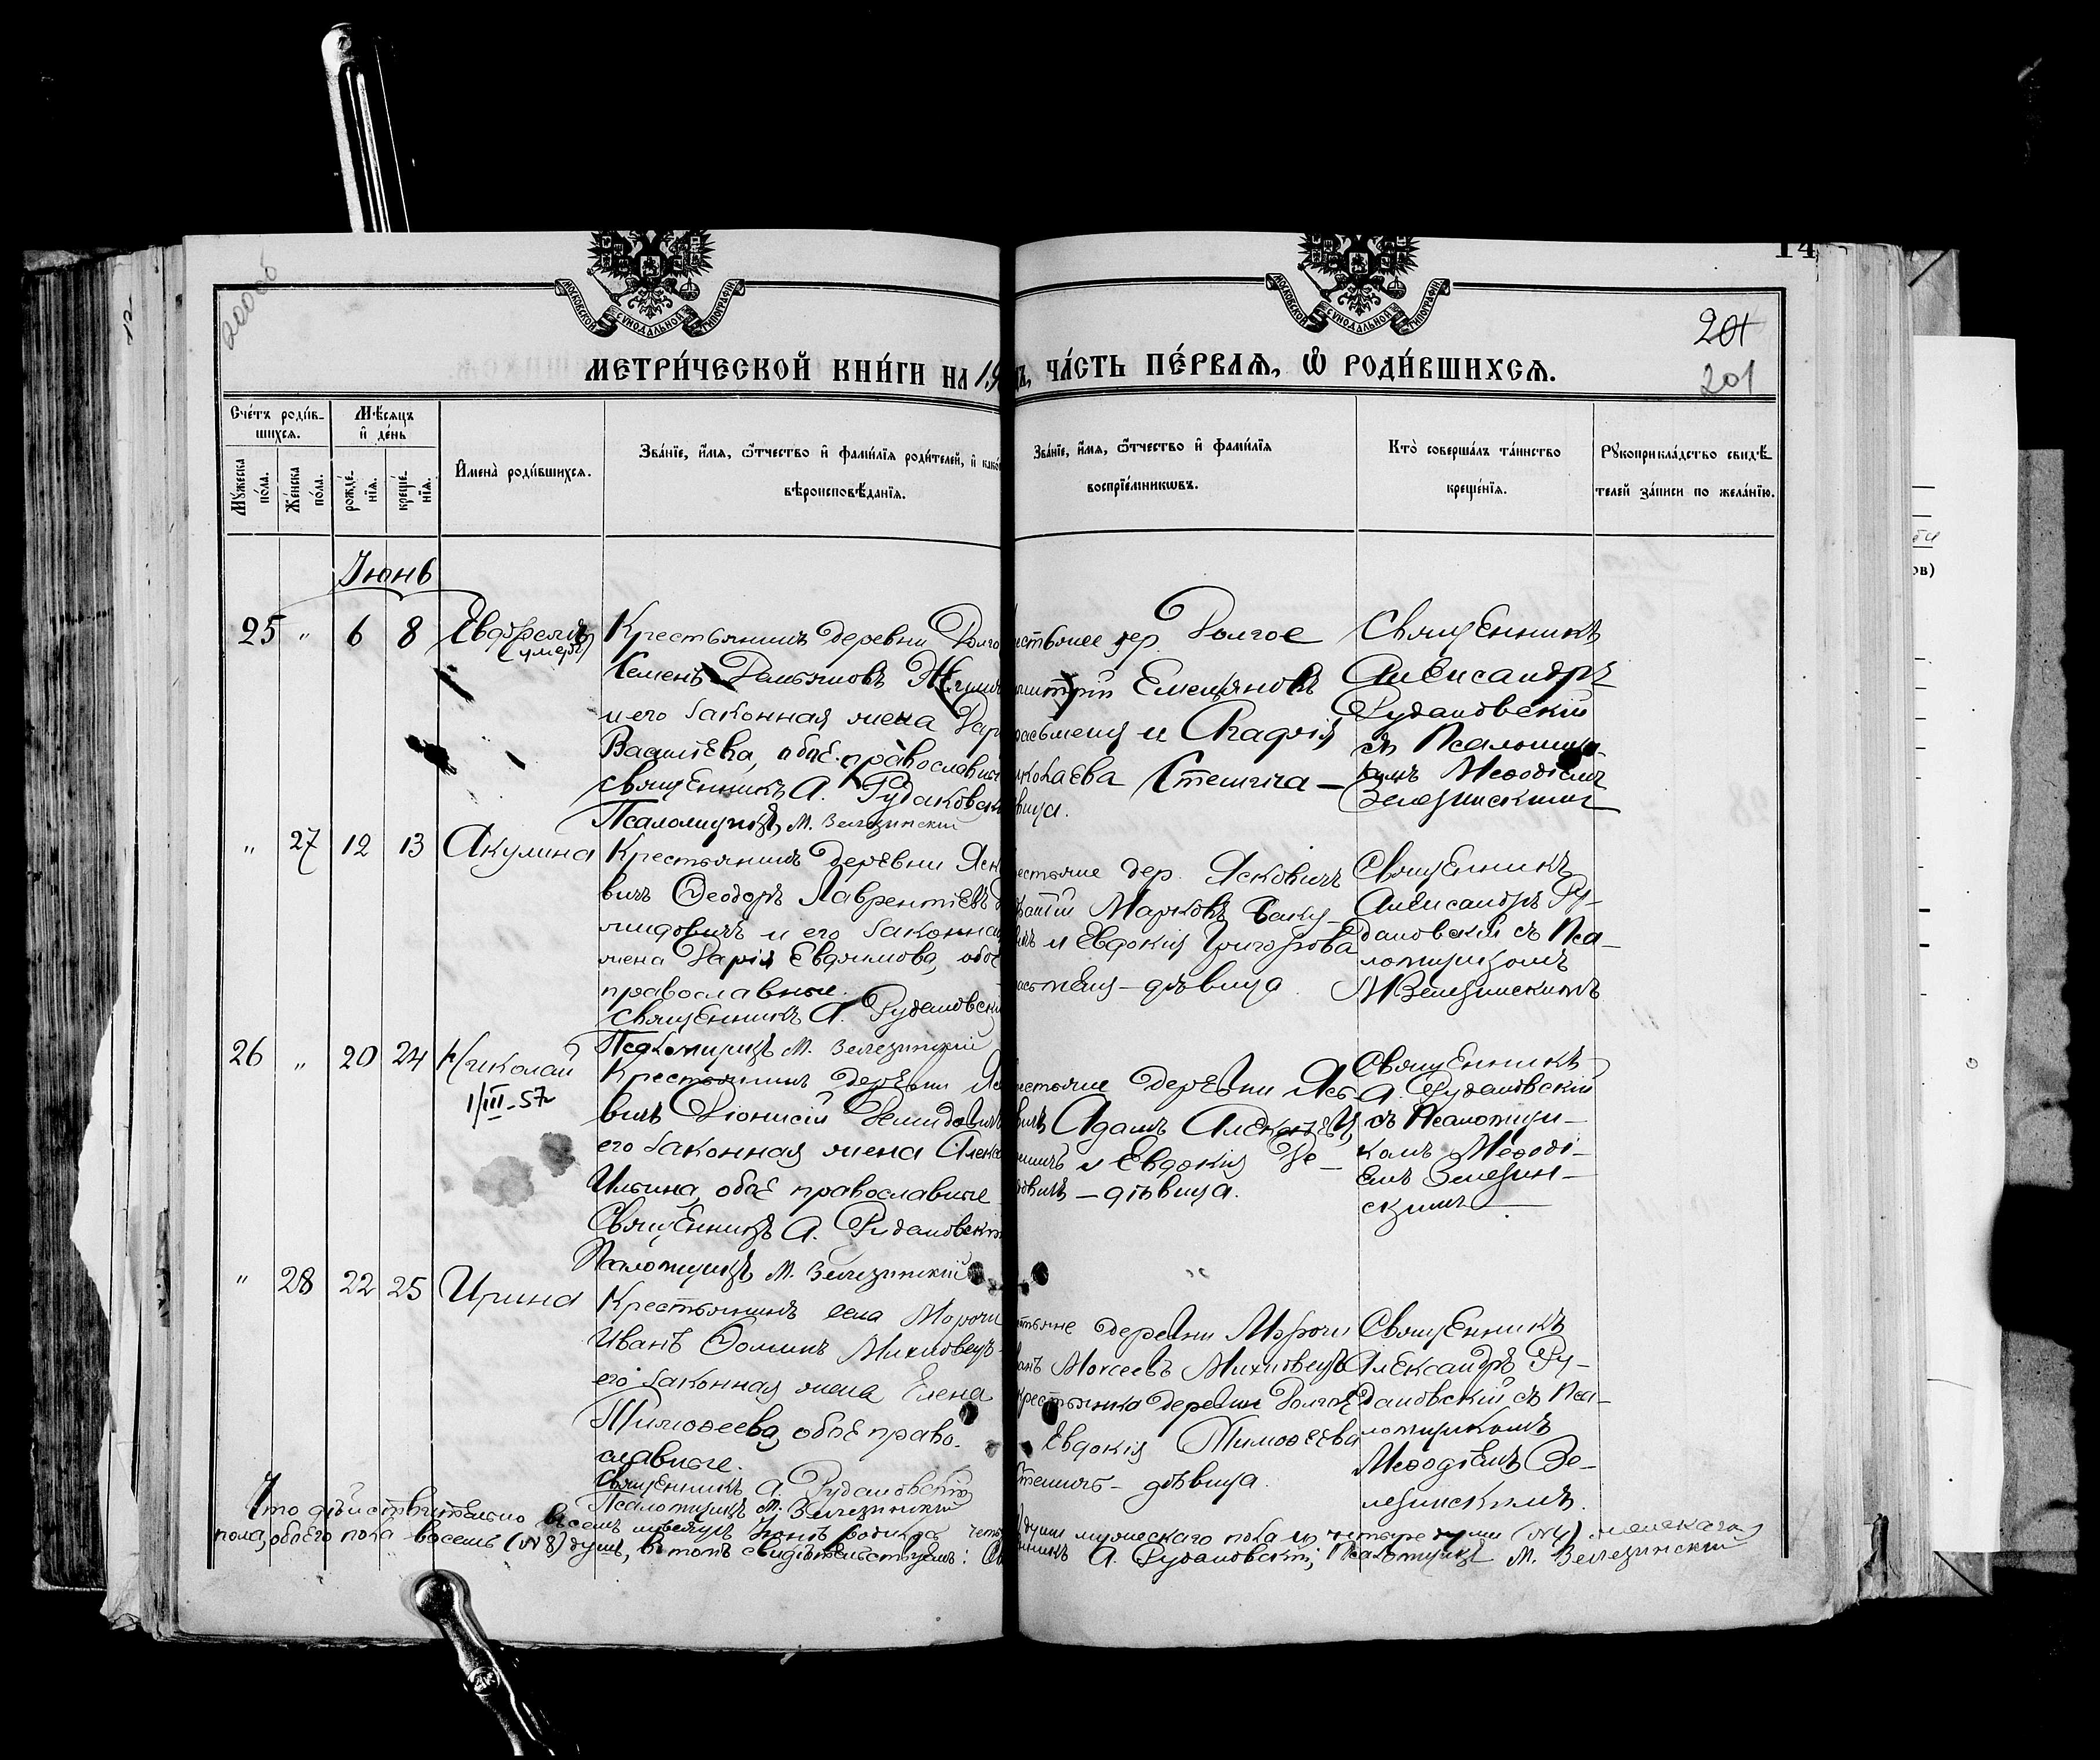 14
200об
201
201
МОСКОВСКОЙ СУНОДАЛЬНОЙ ТИПОГРАФІИ
МОСКОВСКОЙ СУНОДАЛЬНОЙ ТИПОГРАФІИ
МЕТРИ́ЧЕСКОЙ КНИ́ГИ НА 19
ЧА́СТЬ ПЕ́РВАЯ, Ѿ РОДИ́ВШИХСЯ.
Сче́тъ роди́в-
шихся.
Мѣ́сяцъ
и҆ де́нь
Мꙋ́жеска по́ла.
Же́нска по́ла.
рожде́-
нїя.
креще́-
нїя.
И҆мена̀ роди́вшихся.
Зва́нїе, и҆́мя, ѻ҆́тчество и҆ фами́лїя роди́телей, и҆ како́
вѣроисповѣ́данїя.
Зва́нїе, и҆́мя, ѻ҆́тчество и҆ фами́лїя
воспрїе́мникѡвъ.
Кто̀ соверша́лъ та́инство
креще́нїя.
Рꙋкоприкла́дство свидѣ́-
телей за́писи по жела́нїю.
Іюнь
25 " 6 8
(умеръ)
Крестьянинъ деревни Долго
Семенъ Демьяновъ
и его законная жена Дар
Васильева, обое православные
Священникъ А. Рудаковскі
Псаломщикъ М. Зелезинскій
естьяне дер. Долгое
Емельяновъ
и Агафія
иколаева Стешича —
вица.
Священникъ
Александръ
Рудаковскій
съ Псаломщи-
комъ Меѳодіемъ
Зелезинскимъ
" 27 12 13 Акулина
Крестьянинъ деревни Яск
вичъ Ѳеодоръ Лаврентіевъ
мидовичъ и его законная
жена Дарія Евфимова, обое
православные.
Священникъ А. Рудаковскі
Псаломщикъ М. Зелезинскій
естьяне дер. Ясковичъ
Марковъ
и Евдокія Григорьева
— дѣвица.
Священникъ
Александръ Ру-
даковскій съ Пса-
ломщикомъ
М Зелезинскимъ
26 " 20 24 Николай
1/III-57
Крестьянинъ деревни Яс
вичъ Діонисій Демидовичъ
его законная жена Алекса
Ильина, обое православные
Священникъ А. Рудаковскій
Псаломщикъ М. Зелезинскій
естьяне деревни Яс-
вичъ Адамъ
и Евдокія Де-
довичъ — дѣвица.
Священникъ
А. Рудаковскій
съ Псаломщи-
комъ Меѳоді-
емъ Зелезин-
скимъ
" 28 22 25 Ирина
Крестьянинъ села Морочн
Иванъ Ѳоминъ Михновецъ
его законная жена Елена
Тимоѳеева, обое право-
славные.
Священникъ А. Рудаковскій
Псаломщикъ М. Зелезинскій
стьяне деревни Морочн
анъ Моисеевъ Михновецъ
крестьянка деревни Долгое
Евдокія Тимоѳеева
Стешичъ — дѣвица.
Священникъ
Александръ Ру-
даковскій съ Пса-
ломщикомъ
Меѳодіемъ Зе-
лезинскимъ.
Что дѣйствительно въ семъ мѣсяцѣ Іюнѣ родилось четы
души мужескаго пола и четыре души (№ 4) женскаго
пола, обоего пола восемь (№ 8) душъ, въ томъ свидѣтельствуемъ: Св
нникъ А. Рудаковскій; Псаломщикъ М. Зелезинскій